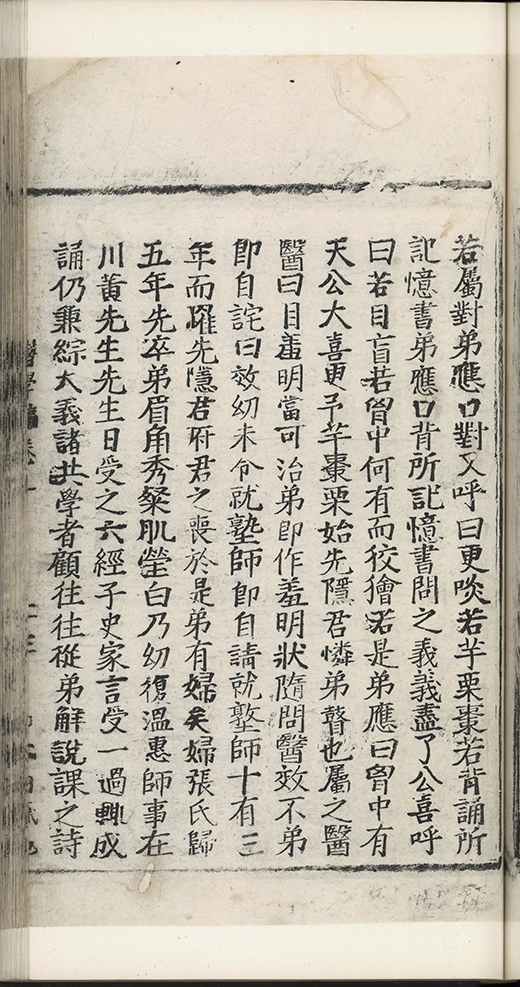 若屬對弟應口對又呼曰更啖若芋栗棗若背誦所
記憶書弟應口背所記憶書問之義義盡了公喜呼
曰若目盲若胷中何有而狡獪若是弟應曰胷中有
天公大喜更予芋棗栗始先隱君憐弟瞽也屬之醫
醫曰目羞明當可治弟即作羞明狀隨問醫效不弟
即自詫曰效幼未令就塾師即自請就塾師十有三
年而罹先隱君府君之喪於是弟有婦矣婦張氏歸
五年先卒弟眉角秀粲肌瑩白乃幼復溫惠師事在
川黃先生先生日受之六經子史家言受一過輒成
誦仍兼綜大義諸共學者顧往往從弟解說課之詩